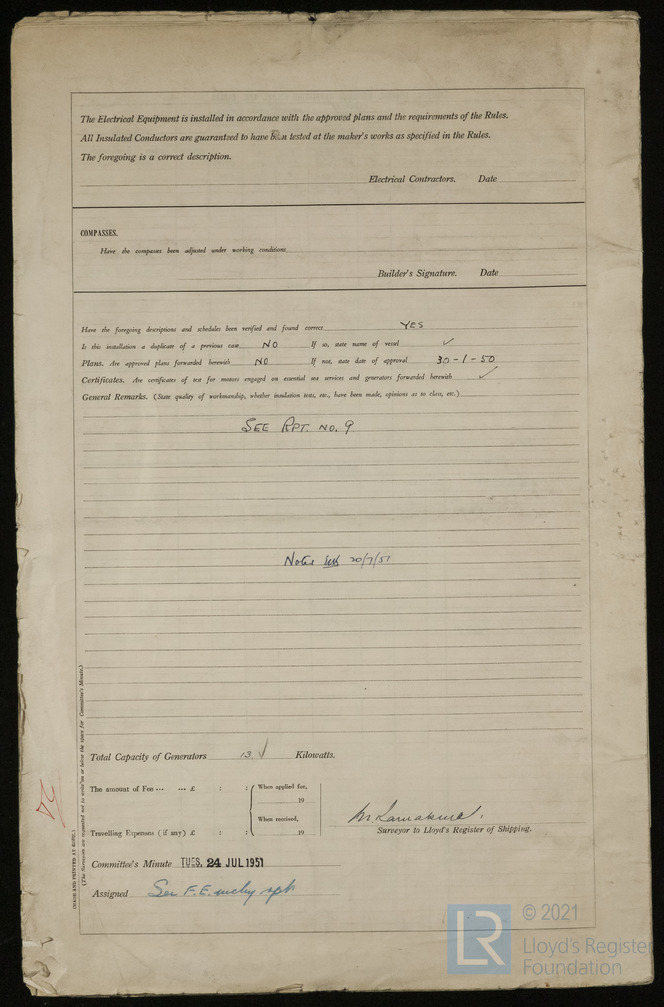 The Electrical Equipment is installed in accordance with the approved plans and the requirements of the Rules.
All Insulated Conductors are guaranteed to have been tested at the maker's works as specified in the Rules.
The foregoing is a correct description.
Electrical Contractors. Date
COMPASSES.
Have the compasses been adjusted under working conditions
Builder's Signature. Date
Have the foregoing descriptions and schedules been verified and found correct YES
Is this installation a duplicate of a previous case NO If so, state name of vessel ✓
Plans. Are approved plans forwarded herewith NO If not, state date of approval 30-1-50
Certificates. Are certificates of test for motors engaged on essential sea services and generators forwarded herewith ✓
General Remarks. (State quality of workmanship, whether insulation tests, etc., have been made, opinions as to class, etc.)
SEE RPT. NO. 9
Noted 20/7/51
Total Capacity of Generators 13 ✓ Kilowatts.
The amount of Fee ... ... £ : : When applied for,
19
When received,
Travelling Expenses (if any) £ : : 19
Surveyor to Lloyd's Register of Shipping.
Committee's Minute TUES. 24 JUL 1951
Assigned See F.E. mchy rpt
(The Surveyors are requested not to write on or below the space for Committee's Minute.)
© 2021
LR
Lloyd's Register
Foundation